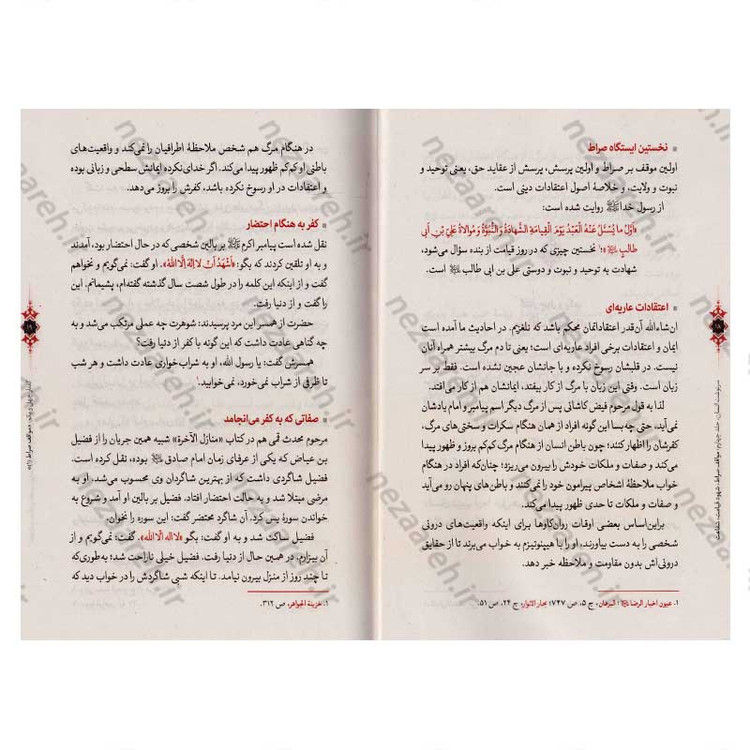 نخستین ایستگاه صراط
اولین موقف بر صراط و اولین پرسش، پرسش از عقاید حق، یعنی توحید و
نبوت و ولایت، و خلاصهٔ اصول اعتقادات دینی است.
از رسول خدا ﷺ روایت شده است:
«أوّلُ ما یُسْئَلُ عَنْهُ الْعَبْدُ یَوْمَ الْقِیامَةِ الشَّهادَةُ وَ النُّبُوَّةُ وَ مُوالاةُ عَلِیِّ بْنِ أبی
طالِبٍ»؛¹ نخستین چیزی که در روز قیامت از بنده سؤال می‌شود،
شهادت به توحید و نبوت و دوستی علی بن ابی طالب است.
اعتقادات عاریه‌ای
ان‌شاءالله آن‌قدر اعتقاداتمان محکم باشد که نلغزیم. در احادیث ما آمده است
ایمان و اعتقادات برخی افراد عاریه‌ای است؛ یعنی تا دم مرگ بیشتر همراه آنان
نیست. در قلبشان رسوخ نکرده و با جانشان عجین نشده است. فقط بر سر
زبان است. وقتی این زبان با مرگ از کار بیفتد، ایمانشان هم از کار می‌افتد.
لذا به قول مرحوم فیض کاشانی پس از مرگ دیگر اسم پیامبر و امام یادشان
نمی‌آید، حتی چه‌بسا این گونه افراد از همان هنگام سکرات و سختی‌های مرگ،
کفرشان را اظهار کنند؛ چون باطن انسان از هنگام مرگ کم‌کم بروز و ظهور پیدا
می‌کند و صفات و ملکات خودش را بیرون می‌ریزد؛ چنان‌که افراد در هنگام
خواب ملاحظهٔ اشخاص پیرامون خود را نمی‌کنند و باطن‌های پنهان رو می‌آید
و صفات و ملکات تا حدی ظهور پیدا می‌کند.
براین‌اساس بعضی اوقات روان‌کاوها برای اینکه واقعیت‌های درونی
شخصی را به دست بیاورند، او را با هیپنوتیزم به خواب می‌برند تا از حقایق
درونی‌اش بدون مقاومت و ملاحظه خبر دهد.
۱. عیون اخبار الرضا؛ البرهان، ج ۵، ص ۷۴۷؛ بحار الانوار، ج ۲۴، ص ۵۱.
سرنوشت انسان، جلد چهارم: مواقف صراط، شهود قیامت، شفاعت
در هنگام مرگ هم شخص ملاحظهٔ اطرافیان را نمی‌کند و واقعیت‌های
باطنی او کم‌کم ظهور پیدا می‌کند. اگر خدای‌نکرده ایمانش سطحی و زبانی بوده
و اعتقادات در او رسوخ نکرده باشد، کفرش را بروز می‌دهد.
کفر به هنگام احتضار
نقل شده است پیامبر اکرم ﷺ بر بالین شخصی که در حال احتضار بود، آمدند
و به او تلقین کردند که بگو: «أشْهَدُ أنْ لا إلهَ إلّا اللهُ». او گفت: نمی‌گویم و نخواهم
گفت و از اینکه این کلمه را در طول شصت سال گذشته گفته‌ام، پشیمانم. این
را گفت و از دنیا رفت.
حضرت از همسر این مرد پرسیدند: شوهرت چه عملی مرتکب می‌شد و به
چه گناهی عادت داشت که این گونه با کفر از دنیا رفت؟
همسرش گفت: یا رسول الله، او به شراب‌خواری عادت داشت و هر شب
تا ظرفی از شراب نمی‌خورد، نمی‌خوابید.¹
صفاتی که به کفر می‌انجامد
مرحوم محدث قمی هم در کتاب «منازل الآخرة» شبیه همین جریان را از فضیل
بن عیاض که یکی از عرفای زمان امام صادق بوده، نقل کرده است.
فضیل شاگردی داشت که از بهترین شاگردان وی محسوب می‌شد. او به
مرضی مبتلا شد و به حالت احتضار افتاد. فضیل بر بالین او آمد و شروع به
خواندن سورهٔ یس کرد. آن شاگرد محتضر گفت: این سوره را نخوان.
فضیل ساکت شد و به او گفت: بگو «لا اله الّا الله». گفت: نمی‌گویم و از
آن بیزارم. در همین حال از دنیا رفت. فضیل خیلی ناراحت شد؛ به‌طوری‌که
تا چند روز از منزل بیرون نیامد. تا اینکه شبی شاگردش را در خواب دید که
۱. خزینة الجواهر، ص ۳۱۲.
nezaareh.ir